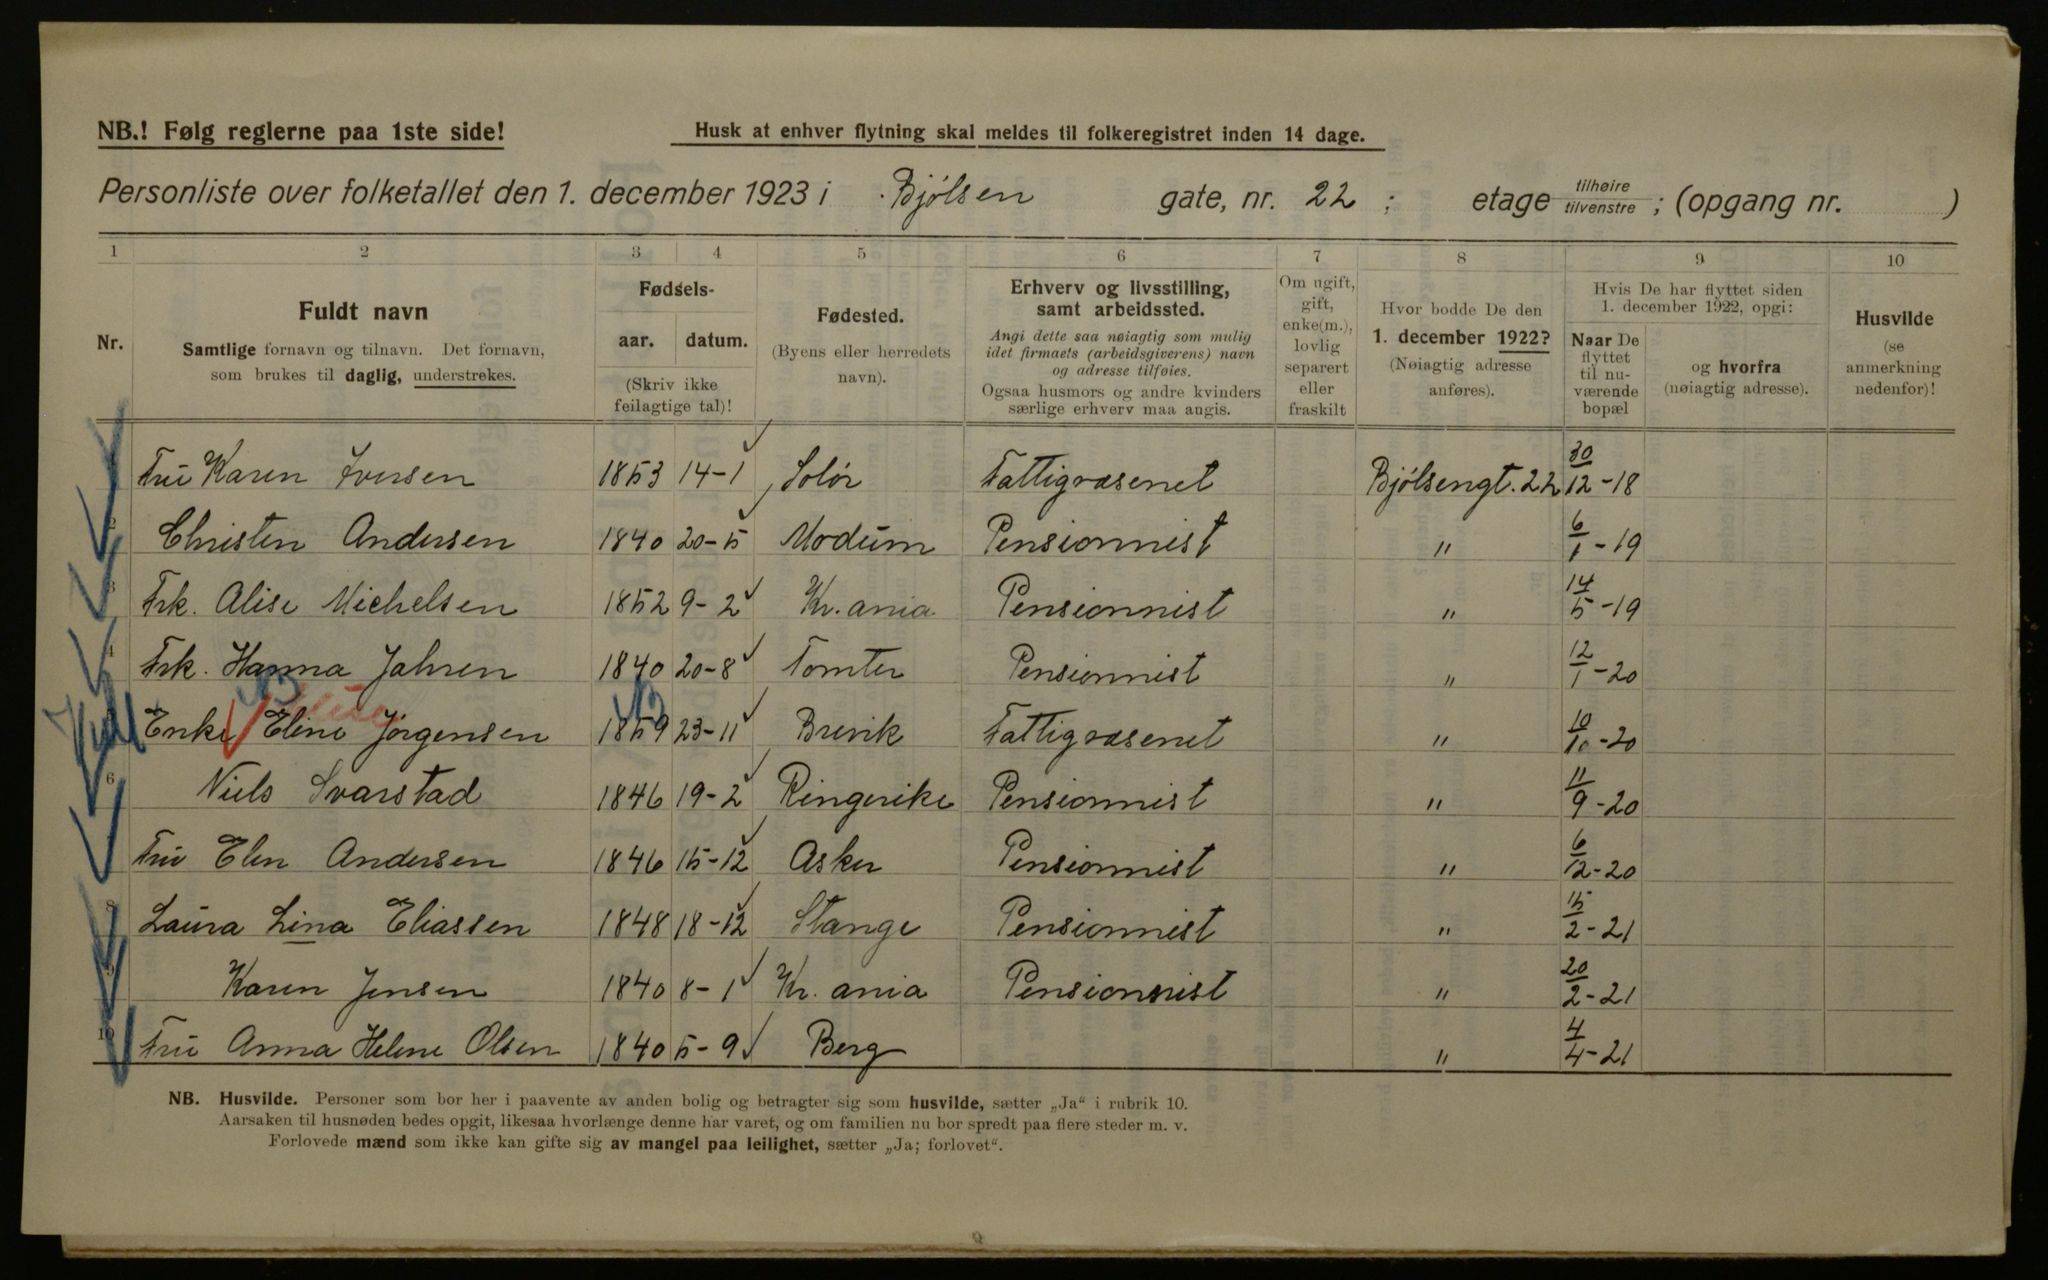 NB.! Følg reglerne paa 1ste side!
Husk at enhver flytning skal meldes til folkeregistret inden 14 dage.
Personliste over folketallet den 1. december 1923 i Bjølsen gate, nr. 22; etage tilhøire tilvenstre; (opgang nr. )
1 2 3 4 5 6 7 8 9 10
Nr.
Fuldt navn
Samtlige fornavn og tilnavn. Det fornavn,
som brukes til daglig, understrekes.
Fødsels-
aar. datum.
(Skriv ikke
feilagtige tal)!
Fødested.
(Byens eller herredets
navn).
Erhverv og livsstilling,
samt arbeidssted.
Angi dette saa nøiagtig som mulig
idet firmaets (arbeidsgiverens) navn
og adresse tilføies.
Ogsaa husmors og andre kvinders
særlige erhverv maa angis.
Om ugift,
gift,
enke(m.),
lovlig
separert
eller
fraskilt
Hvor bodde De den
1. december 1922?
(Nøiagtig adresse
anføres).
Hvis De har flyttet siden
1. december 1922, opgi:
Naar De
flyttet
til nu-
værende
bopæl
og hvorfra
(nøiagtig adresse).
Husvilde
(se
anmerkning
nedenfor)!
Fru Karen Iversen 1853 14-1 Solør Fattigvæsenet Bjølsengt. 22 30/12-18
2 Christen Andersen 1840 20-5 Modum Pensionnist " 6/1-19
3 Frk. Alise Michelsen 1852 9-2 Kr.ania Pensionnist " 14/5-19
4 Frk. Hanna Jahren 1840 20-8 Tomter Pensionnist " 12/1-20
Enke Eline Jørgensen 1859 23-11 Brevik Fattigvæsenet " 10/10-20
6 Niels Svarstad 1846 19-2 Ringerike Pensionnist " 11/9-20
Fru Elen Andersen 1846 15-12 Asker Pensionnist " 6/12-20
8 Laura Lina Eliassen 1848 18-12 Stange Pensionnist " 15/2-21
9 Karen Jensen 1840 8-1 Kr.ania Pensionnist " 20/2-21
10 Fru Anna Helene Olsen 1840 5-9 Berg " 4/4-21
NB. Husvilde. Personer som bor her i paavente av anden bolig og betragter sig som husvilde, sætter „Ja“ i rubrik 10.
Aarsaken til husnøden bedes opgit, likesaa hvorlænge denne har varet, og om familien nu bor spredt paa flere steder m. v.
Forlovede mænd som ikke kan gifte sig av mangel paa leilighet, sætter „Ja; forlovet“.